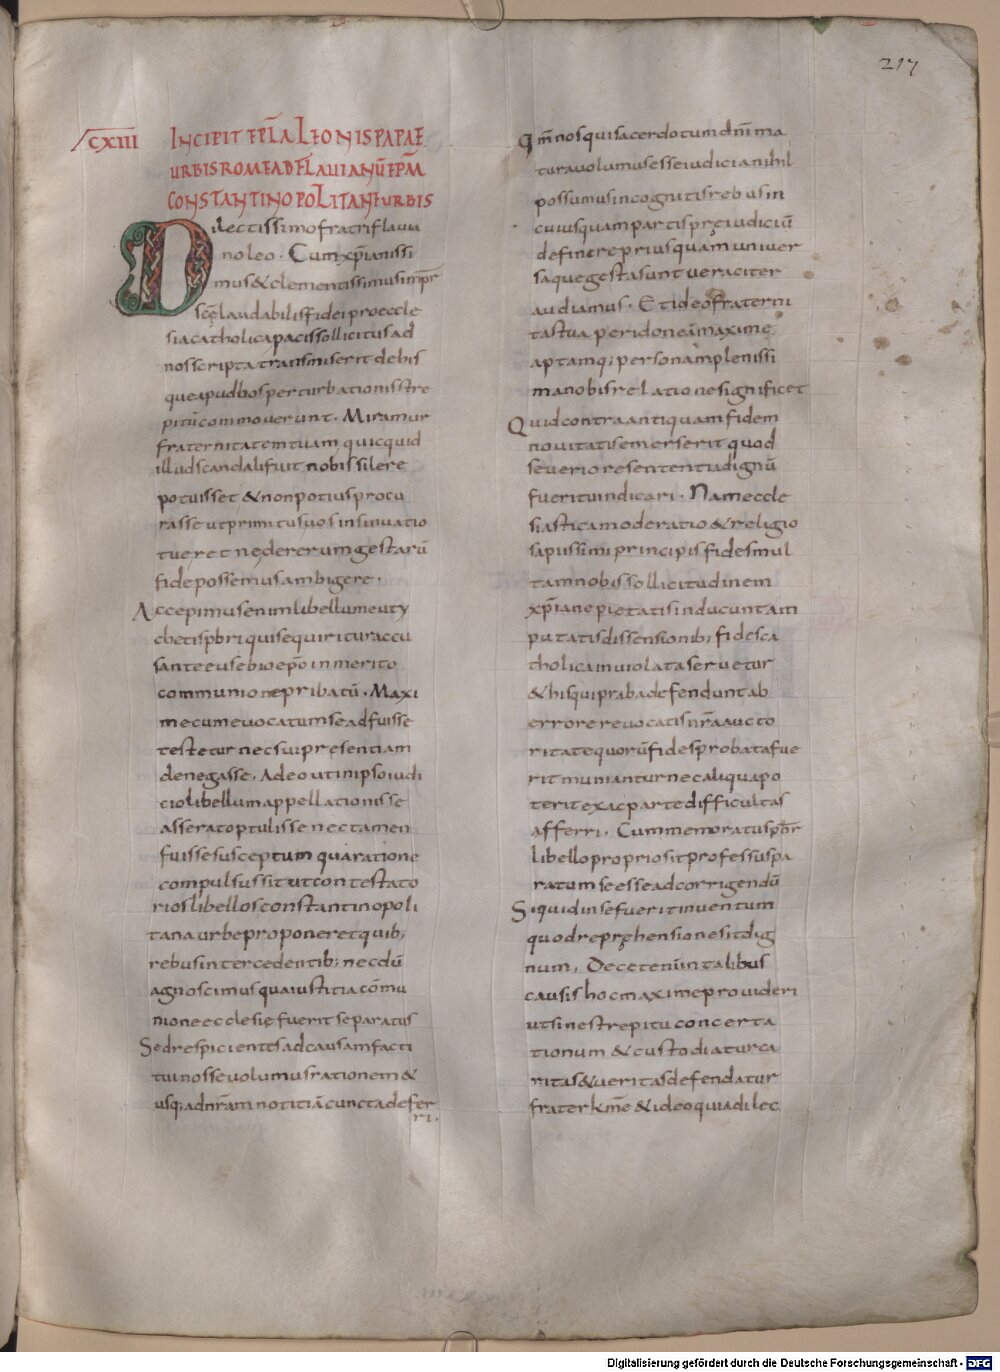 217
CXIII INCIPIT EPLA LEONIS PAPAE
URBIS ROME AD FLAUIANŪ EPM̄
CONSTANTINOPOLITANE URBIS
Dilectissimo fratri flauia
no leo . Cum xp̄ianissi
mus & clementissimus impr̄
scę laudabilis fidei pro eccle
sia catholica pacis sollicitus ad
nos scripta transmiserit de his
que apud bos perturbationis stre
pitū commouerunt . Miramur
fraternitatem tuam quicquid
illud scandali fuit nobis silere
potuisset & non potius procu
rasse ut primitus uos insinuatio
tue ret ne de rerum gestarū
fide possemus ambigere .
Accepimus enim libellum euty
chetis pb̄ri qui sequiritur accu
sante eusebio ep̄o inmerito
communione pribatū . Maxi
me cum euocatum se adfuisse
testetur nec sui presentiam
denegasse . Adeo ut in ipso iudi
cio libellum appellationis se
asserat optulisse nec tamen
fuisse susceptum qua ratione
compulsus sit ut contestato
rios libellos constantinopoli
tana urbe proponeret quib;
rebus intercedentib; necdū
agnoscimus qua iustitia cōmu
nione ecclesię fuerit separatus
Sed respicientes ad causam facti
tui nosse uolumus rationem &
usq; ad nr̄am notitiā cuncta defer
ri .
Qm̄ nos qui sacerdotum dnm̄ ma
tura uolumus esse iudicia nihil
possumus incognitis rebus in
cuiusquam partis preiudiciū
definere priusquam uniuer
sa que gesta sunt ueraciter
audiamus . Et ideo fraterni
tas tua per idoneā maxime
aptamq; personam plenissi
ma nobis relatione significet
Quid contra antiquam fidem
nouitatis emerserit quod
seueriore sententia dignū
fuerit uindicari . Nam eccle
siastica moderatio & religio
sa piissimi principis fides mul
tam nobis sollicitudinem
xp̄iane pietatis inducunt am
putatis dissensionib; fides ca
tholica inuiolata seruetur
& his qui praba defendunt ab
errore reuocatis nr̄a aucto
ritate quorū fides probata fue
rit muniantur nec aliqua po
terit ex ac parte difficultas
afferri . Cum memoratus pb̄r
libello proprio sit professus pa
ratum se esse ad corrigendū
Si quid in se fuerit inuentum
quod reprehensione sit dig
num . Decet enim talibus
causis hoc maxime prouideri
ut sine strepitu concerta
tionum & custodiatur ca
ritas & ueritas defendatur
frater kme & ideo quia dilec
Digitalisierung gefördert durch die Deutsche Forschungsgemeinschaft - DFG